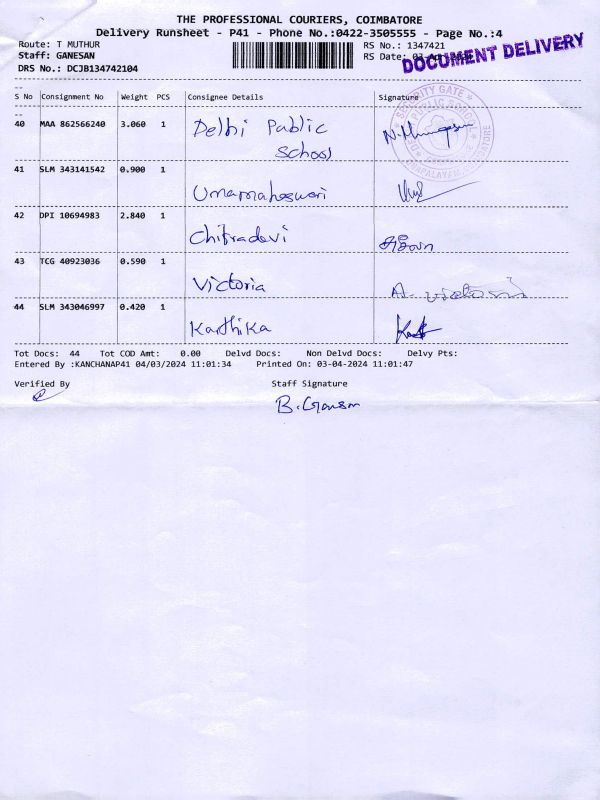 THE PROFESSIONAL COURIERS, COIMBATORE
Delivery Runsheet - P41 - Phone No.:0422-3505555 - Page No.:4
Route: T MUTHUR
RS No.: 1347421
Staff: GANESAN
RS Date:
DOCUMENT DELIVERY
DRS No.: DCJB134742104
S No Consignment No Weight PCS Consignee Details Signature
SECURITY GATE
40 MAA 862566240 3.060 1 Delhi Public
School
41 SLM 343141542 0.900 1
Umamaheswari
42 DPI 10694983 2.840 1
Chitradevi
43 TCG 40923036 0.590 1
Victoria A. Victoria
44 SLM 343046997 0.420 1
Karthika
Tot Docs: 44 Tot COD Amt: 0.00 Delvd Docs: Non Delvd Docs: Delvy Pts:
Entered By :KANCHANAP41 04/03/2024 11:01:34 Printed On: 03-04-2024 11:01:47
Verified By Staff Signature